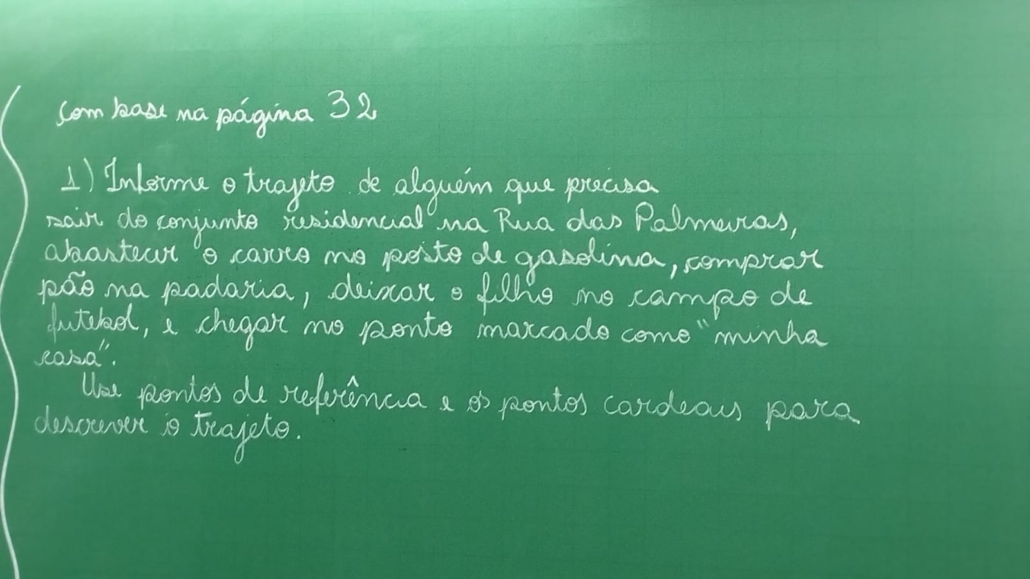 com base na página 32
1) Informe o trajeto de alguém que precisa
sair do conjunto residencial na Rua das Palmeiras,
abastecer o carro no posto de gasolina, comprar
pão na padaria, deixar o filho no campo de
futebol, e chegar no ponto marcado como "minha
casa".
Use pontos de referência e os pontos cardeais para
descrever o trajeto.